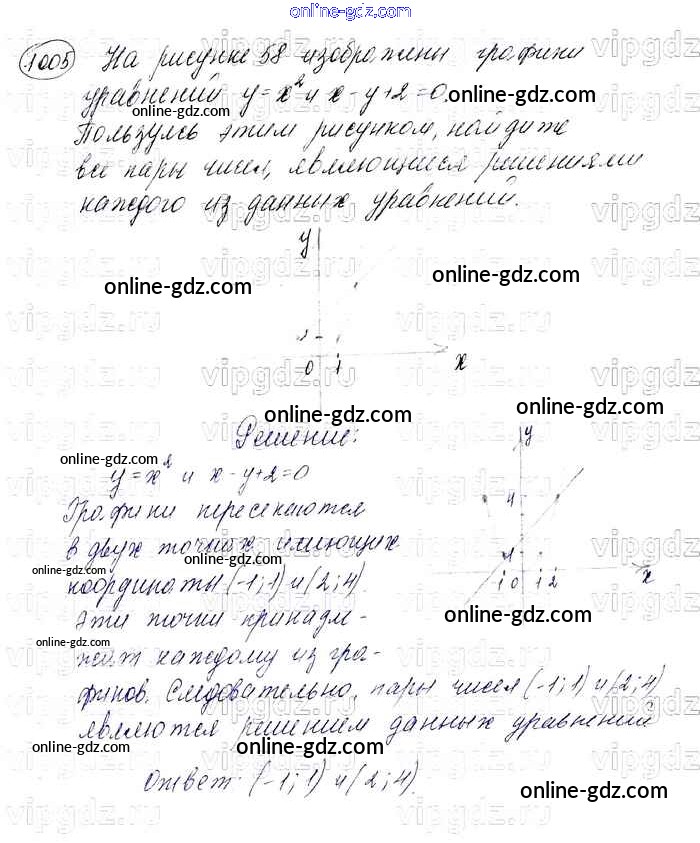 online-gdz.com
1005 На рисунке 58 изображены графики
уравнений y=x² и x-y+2=0. online-gdz.com
Пользуясь этим рисунком, найдите
все пары чисел, являющиеся решениями
каждого из данных уравнений.
y
online-gdz.com
online-gdz.com
0 1 x
online-gdz.com
online-gdz.com
Решение:
y
online-gdz.com
y=x² и x-y+2=0
Графики пересекаются
4
в двух точках имеющих
1
online-gdz.com
координаты (-1;1) и (2;4).
-1 0 1 2 x
Эти точки принадле-
online-gdz.com
online-gdz.com
жат каждому из гра-
фиков. Следовательно, пары чисел (-1;1) и (2;4)
являются решением данных уравнений
online-gdz.com
online-gdz.com
Ответ: (-1;1) и (2;4).
online-gdz.com
vipgdz.ru